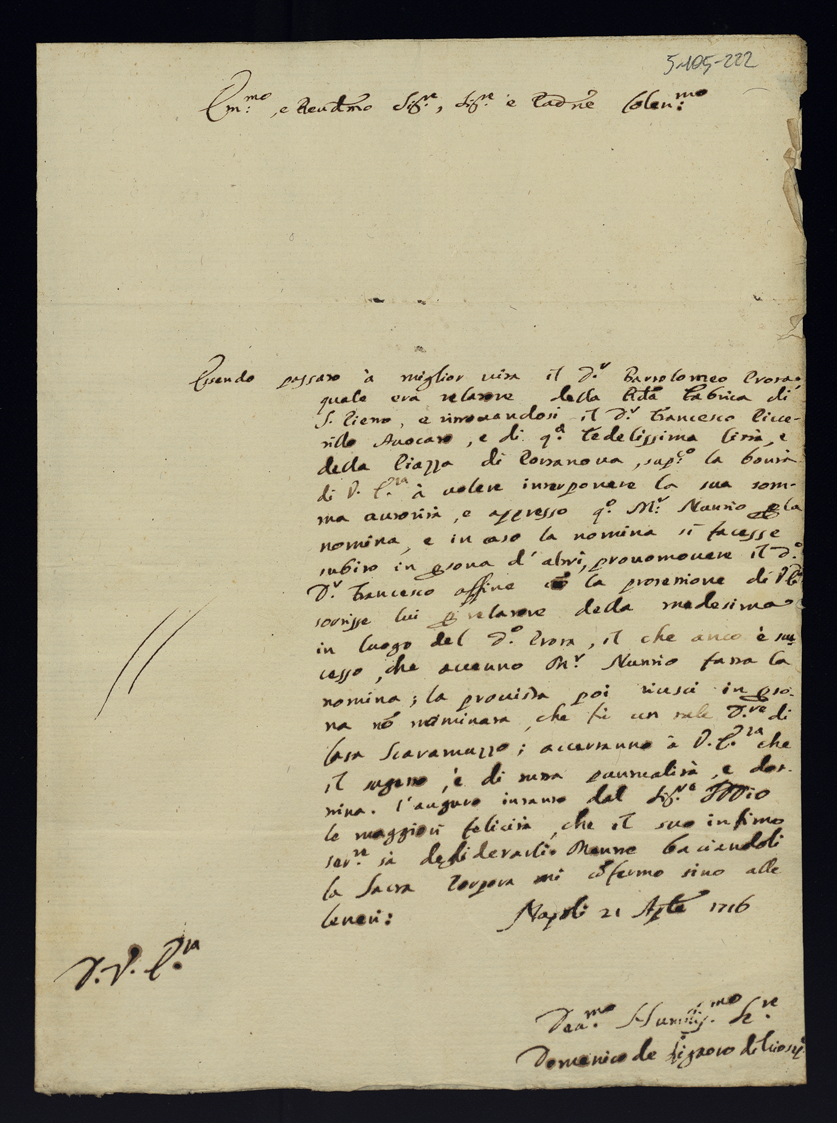 5-105-222
Em.mo, e Reudmo Sig.re, Sig.re e Padne Colen:mo
Essendo passato à miglior vita il D.r Bartolomeo
quale era relatore della Rda Fabrica di
S. Pietro, e ritrovandosi il D.r Francesco Picce-
rillo Avocato, e di q.a Fedelissima Città, e
della Piazza di Portanova, sup.co la bontà
di V. E.za à volere interponere la sua som-
ma autorità, e appresso q.o M.r Nuntio p la
nomina, e in caso la nomina si facesse
subito in psona d'altri, promovere il d.o
D.r Francesco affine cō la protettione di V.E.
sortisse lui p relatore della medesima
in luogo del d.o , il che anco è suc-
cesso, che avenno M.r Nuntio fatta la
nomina; la provista poi riuscì in pso-
na nō nominata, che fù un tale D.re di
Casa Scaramuzzo; accertanno à V.E.za che
il sugetto, è di tutta puntualità, e dot-
trina. L'auguro intanto dal Sig.re Iddio
le maggiori felicità, che il suo infimo
ser.re sà desiderarli. Mentre baciandoli
la Sacra Porpora mi cōfermo sino alle
ceneri: Napoli 21 Aple 1716
D. V. E.za
Dev.mo Humiliss.mo Se.re
Domenico de